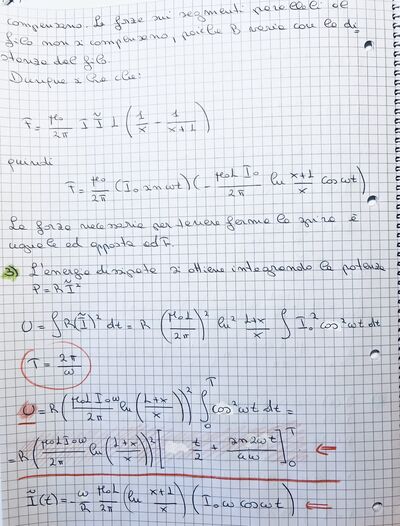 compensano. Le forze sui segmenti paralleli al
filo non si compensano, poiché B varia con la di
stanza dal filo.
Dunque si ha che:
F = μ₀/2π I Ĩ L (1/x - 1/(x+L))
quindi
F = μ₀/2π (I₀ sin ωt) (- μ₀L I₀/2π ln (x+L)/x cos ωt)
La forza necessaria per tenere ferma la spira è
uguale ed opposta ad F.
3) L'energia dissipata si ottiene integrando la potenza
P = R Ĩ²
U = ∫ R(Ĩ)² dt = R (μ₀L/2π)² ln² (L+x)/x ∫ I₀² cos² ωt dt
T = 2π/ω
U = R (μ₀L I₀ω/2π ln ((L+x)/x))² ∫₀ᵀ cos² ωt dt =
= R (μ₀L I₀ω/2π ln ((L+x)/x))² [t/2 + sin 2ωt/4ω]₀ᵀ ⇐
Ĩ(t) = - ω/R μ₀L/2π (ln (x+L)/x) (I₀ω cos ωt) ⇐